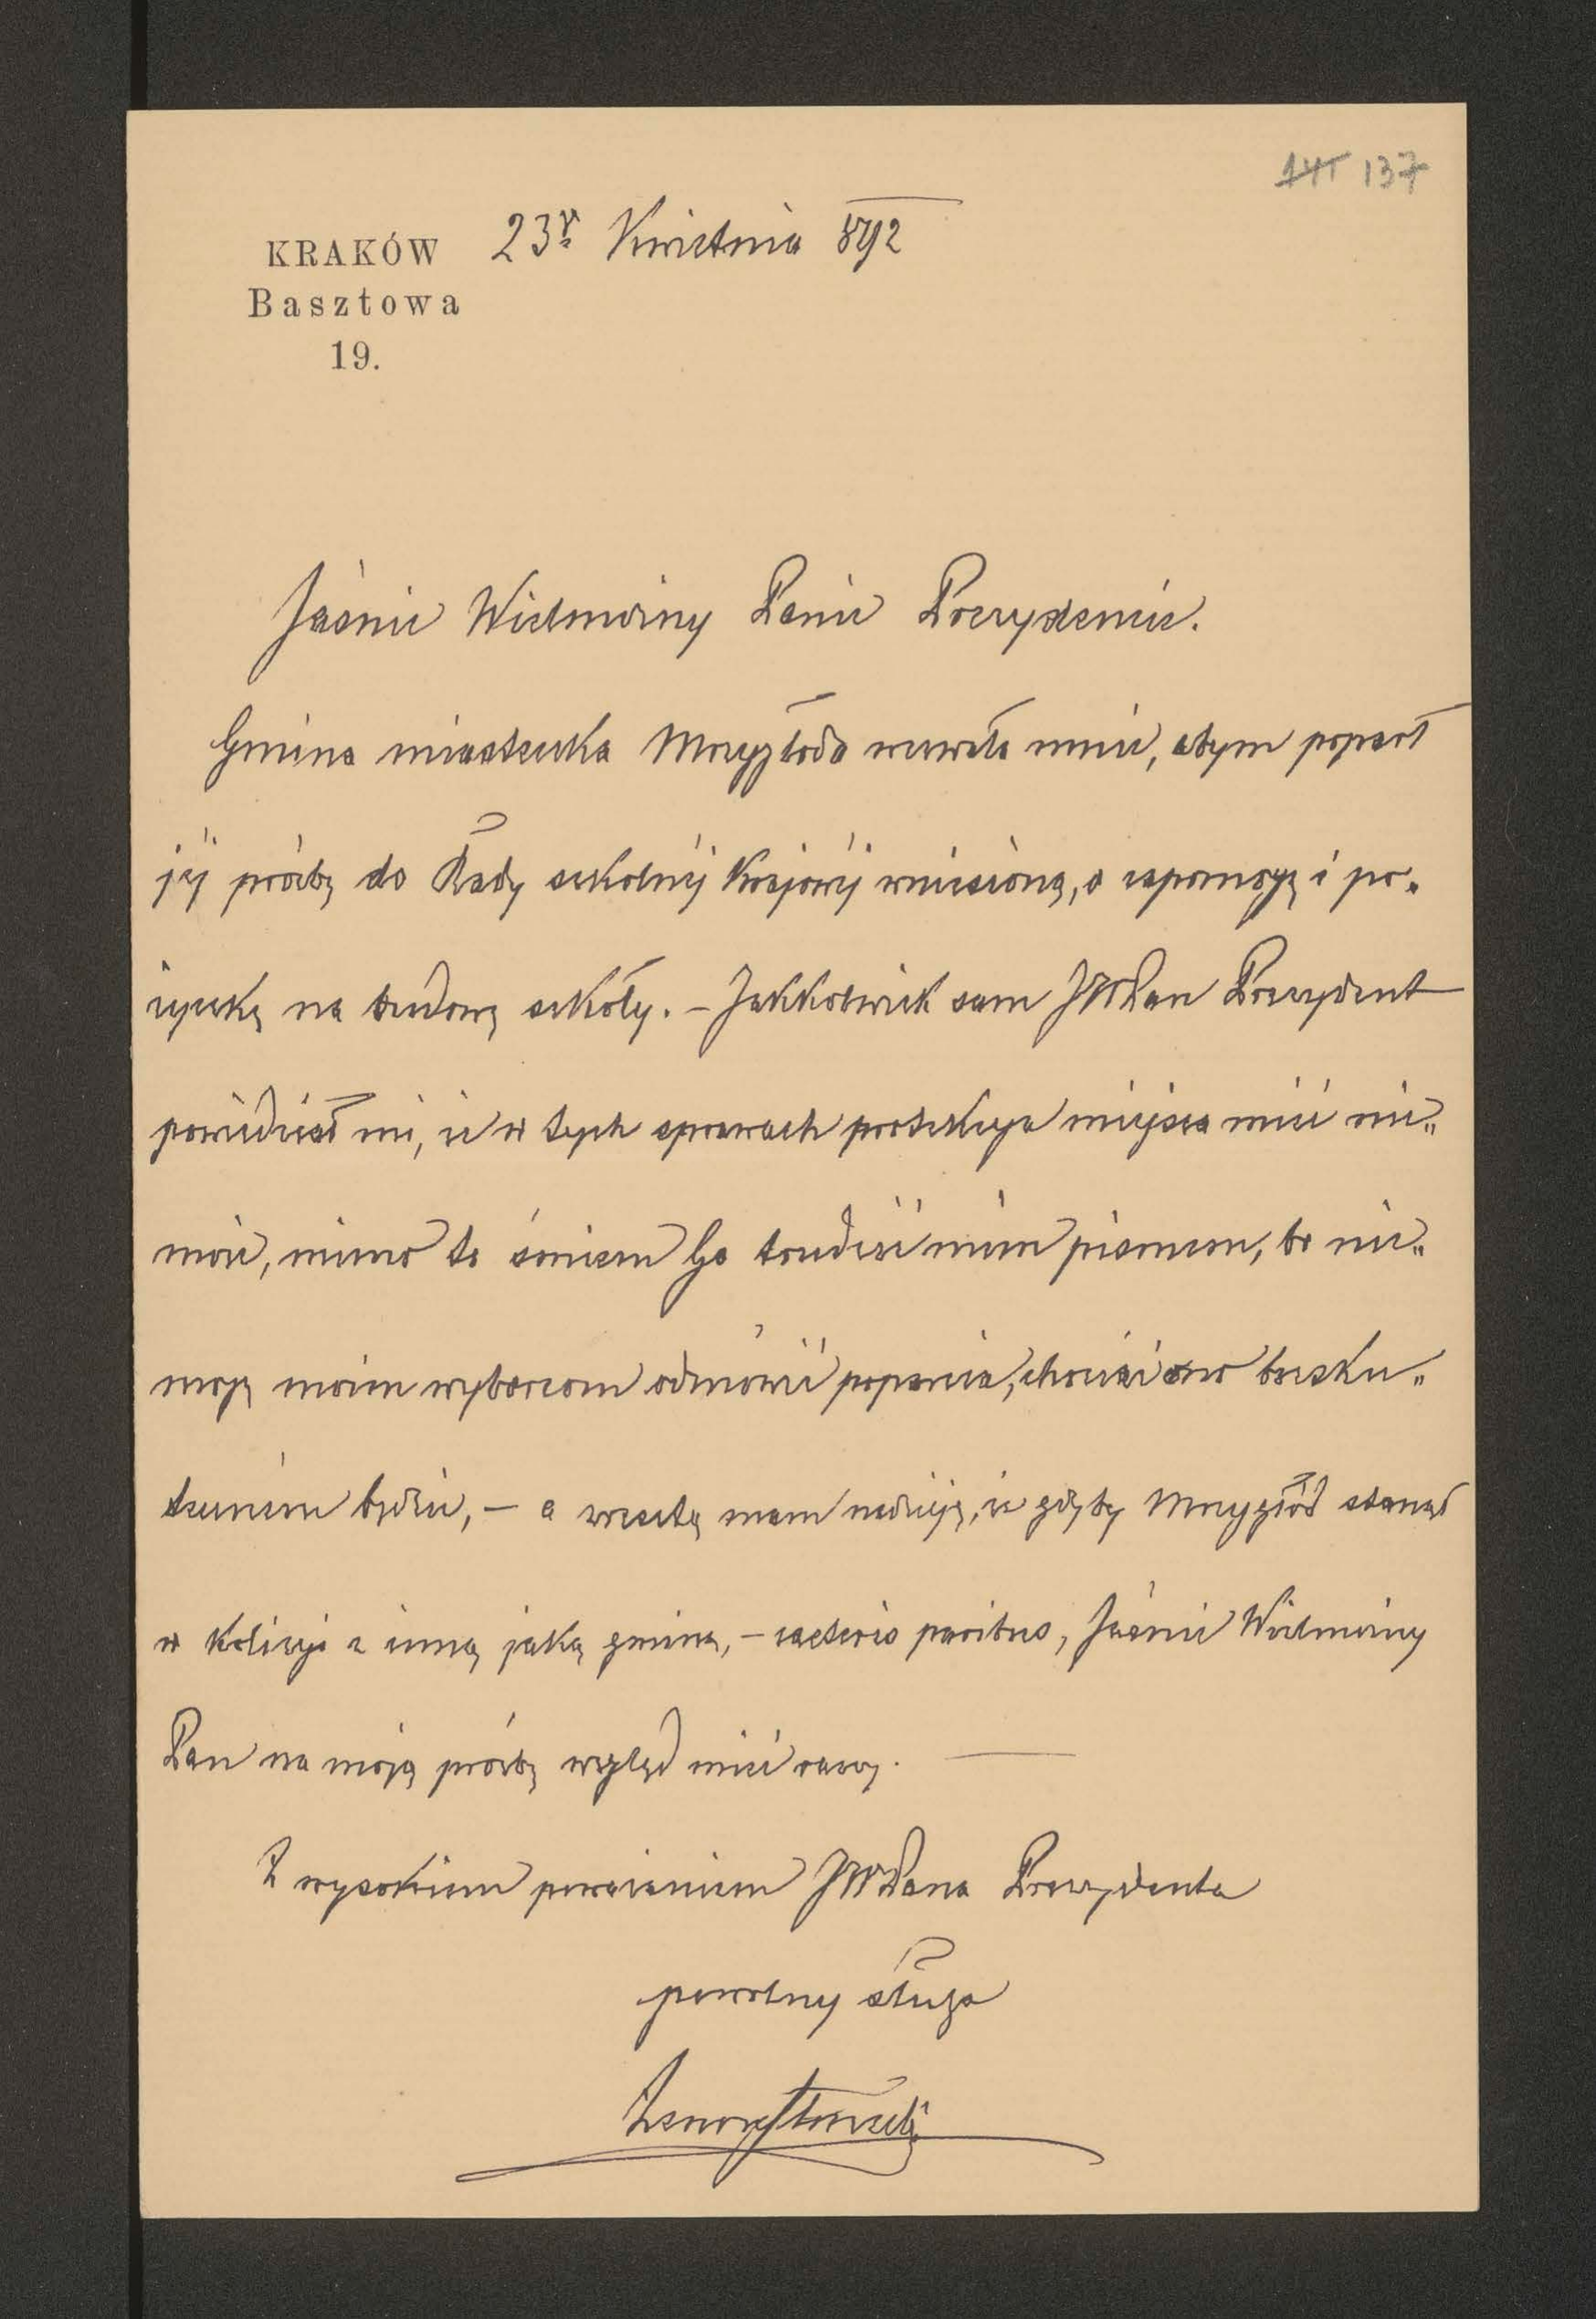 137
KRAKÓW 23go Kwietnia 892
Basztowa
19.
Jaśnie Wielmożny Panie Prezydencie.
Gmina miasteczka Mrzygłoda wezwała mnie, abym poparł
jéj prośbę do Rady szkolnéj Krajowéj wniesioną, o zapomogę i po-
życzkę na budowę szkoły. – Jakkolwiek sam JWPan Prezydent
powiedział mi, iż w tych sprawach protekcya miejsca mieć nie-
może, mimo to śmiem Go trudzić niniejszem pismem, bo nie-
mogę moim wyborcom odmówić poparcia, chociaż ono bezsku-
teczném będzie, – a zresztą mam nadzieję, iż gdyby Mrzygłód stanął
w kolizyi z inną jaką gminą, – caeteris paribus, Jaśnie Wielmożny
Pan na moją prośbę wzgląd mieć raczy. —
Z wysokiem poważaniem JWPana Prezydenta
powolny sługa